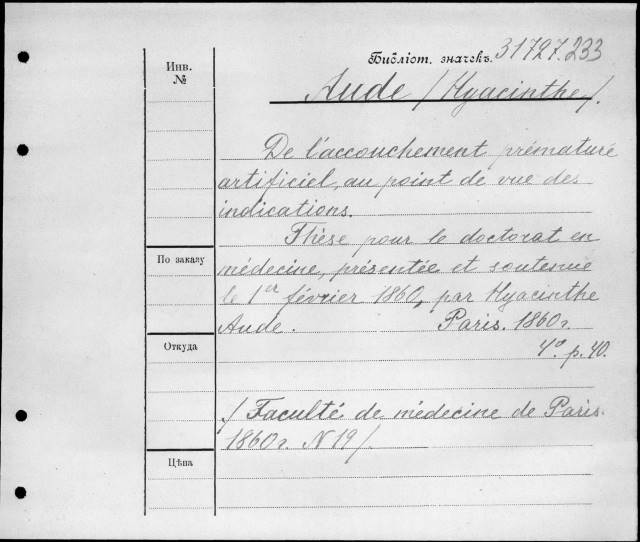 Библіот. значекъ. 31727.233
Инв.
№
Aude /Hyacinthe/.
De l'accouchement prématuré
artificiel, au point de vue des
indications.
Thèse pour le doctorat en
По заказу
médecine, présentée et soutenue
le 1er février 1860, par Hyacinthe
Aude. Paris. 1860г.
Откуда
4º. p. 40.
/Faculté de médecine de Paris.
1860г. N 19/.
Цѣна